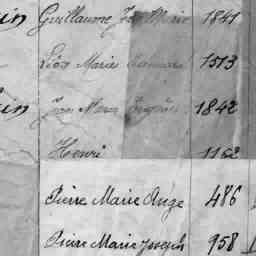 Guillaume Jean Marie 1841
Léon Marie 1513
Jean Marie 1842
Henri 1162
Pierre Marie Ange 486
Pierre Marie Joseph 958